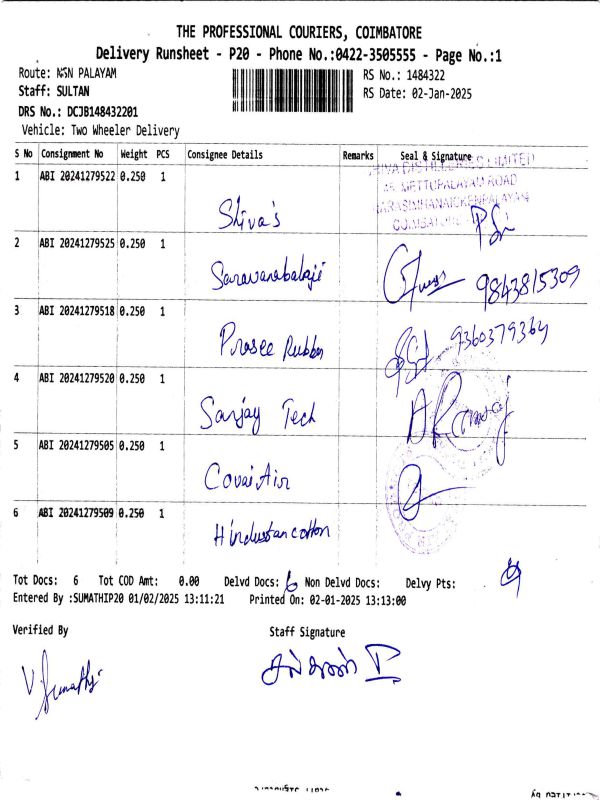 THE PROFESSIONAL COURIERS, COIMBATORE
Delivery Runsheet - P20 - Phone No.:0422-3505555 - Page No.:1
Route: NSN PALAYAM RS No.: 1484322
Staff: SULTAN RS Date: 02-Jan-2025
DRS No.: DCJB148432201
Vehicle: Two Wheeler Delivery
S No Consignment No Weight PCS Consignee Details Remarks Seal & Signature
LIMITED
1 ABI 20241279522 0.250 1
METTUPALAYAM ROAD
NARASIMHANAICKENPALAYAM
Shiva's COIMBATORE
2 ABI 20241279525 0.250 1
Saravanabalaji 9843815309
3 ABI 20241279518 0.250 1
Prasee Rubber 9360379364
4 ABI 20241279520 0.250 1
Sanjay Tech
5 ABI 20241279505 0.250 1
Covai Air
6 ABI 20241279509 0.250 1
Hindustan cotton
Tot Docs: 6 Tot COD Amt: 0.00 Delvd Docs: 6 Non Delvd Docs: Delvy Pts:
Entered By :SUMATHIP20 01/02/2025 13:11:21 Printed On: 02-01-2025 13:13:00
Verified By Staff Signature
V Sumathi சுல்தான்